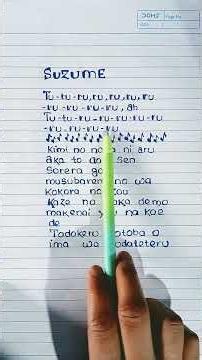 DOMS
SUZUME
Tu-tu-ru,ru,ru,ru,ru
-ru-ru-ru-ru, ah
Tu-tu-ru-ru-ru-ru-ru
-ru-ru-ru-ru
Kimi no na ni aru
aka to ao sen
Sorera ga
musubare no wa
Kokoro no
Kaze no naka demo
makenai you na koe
de
Todokeru kotoba o
ima wa sodateteru